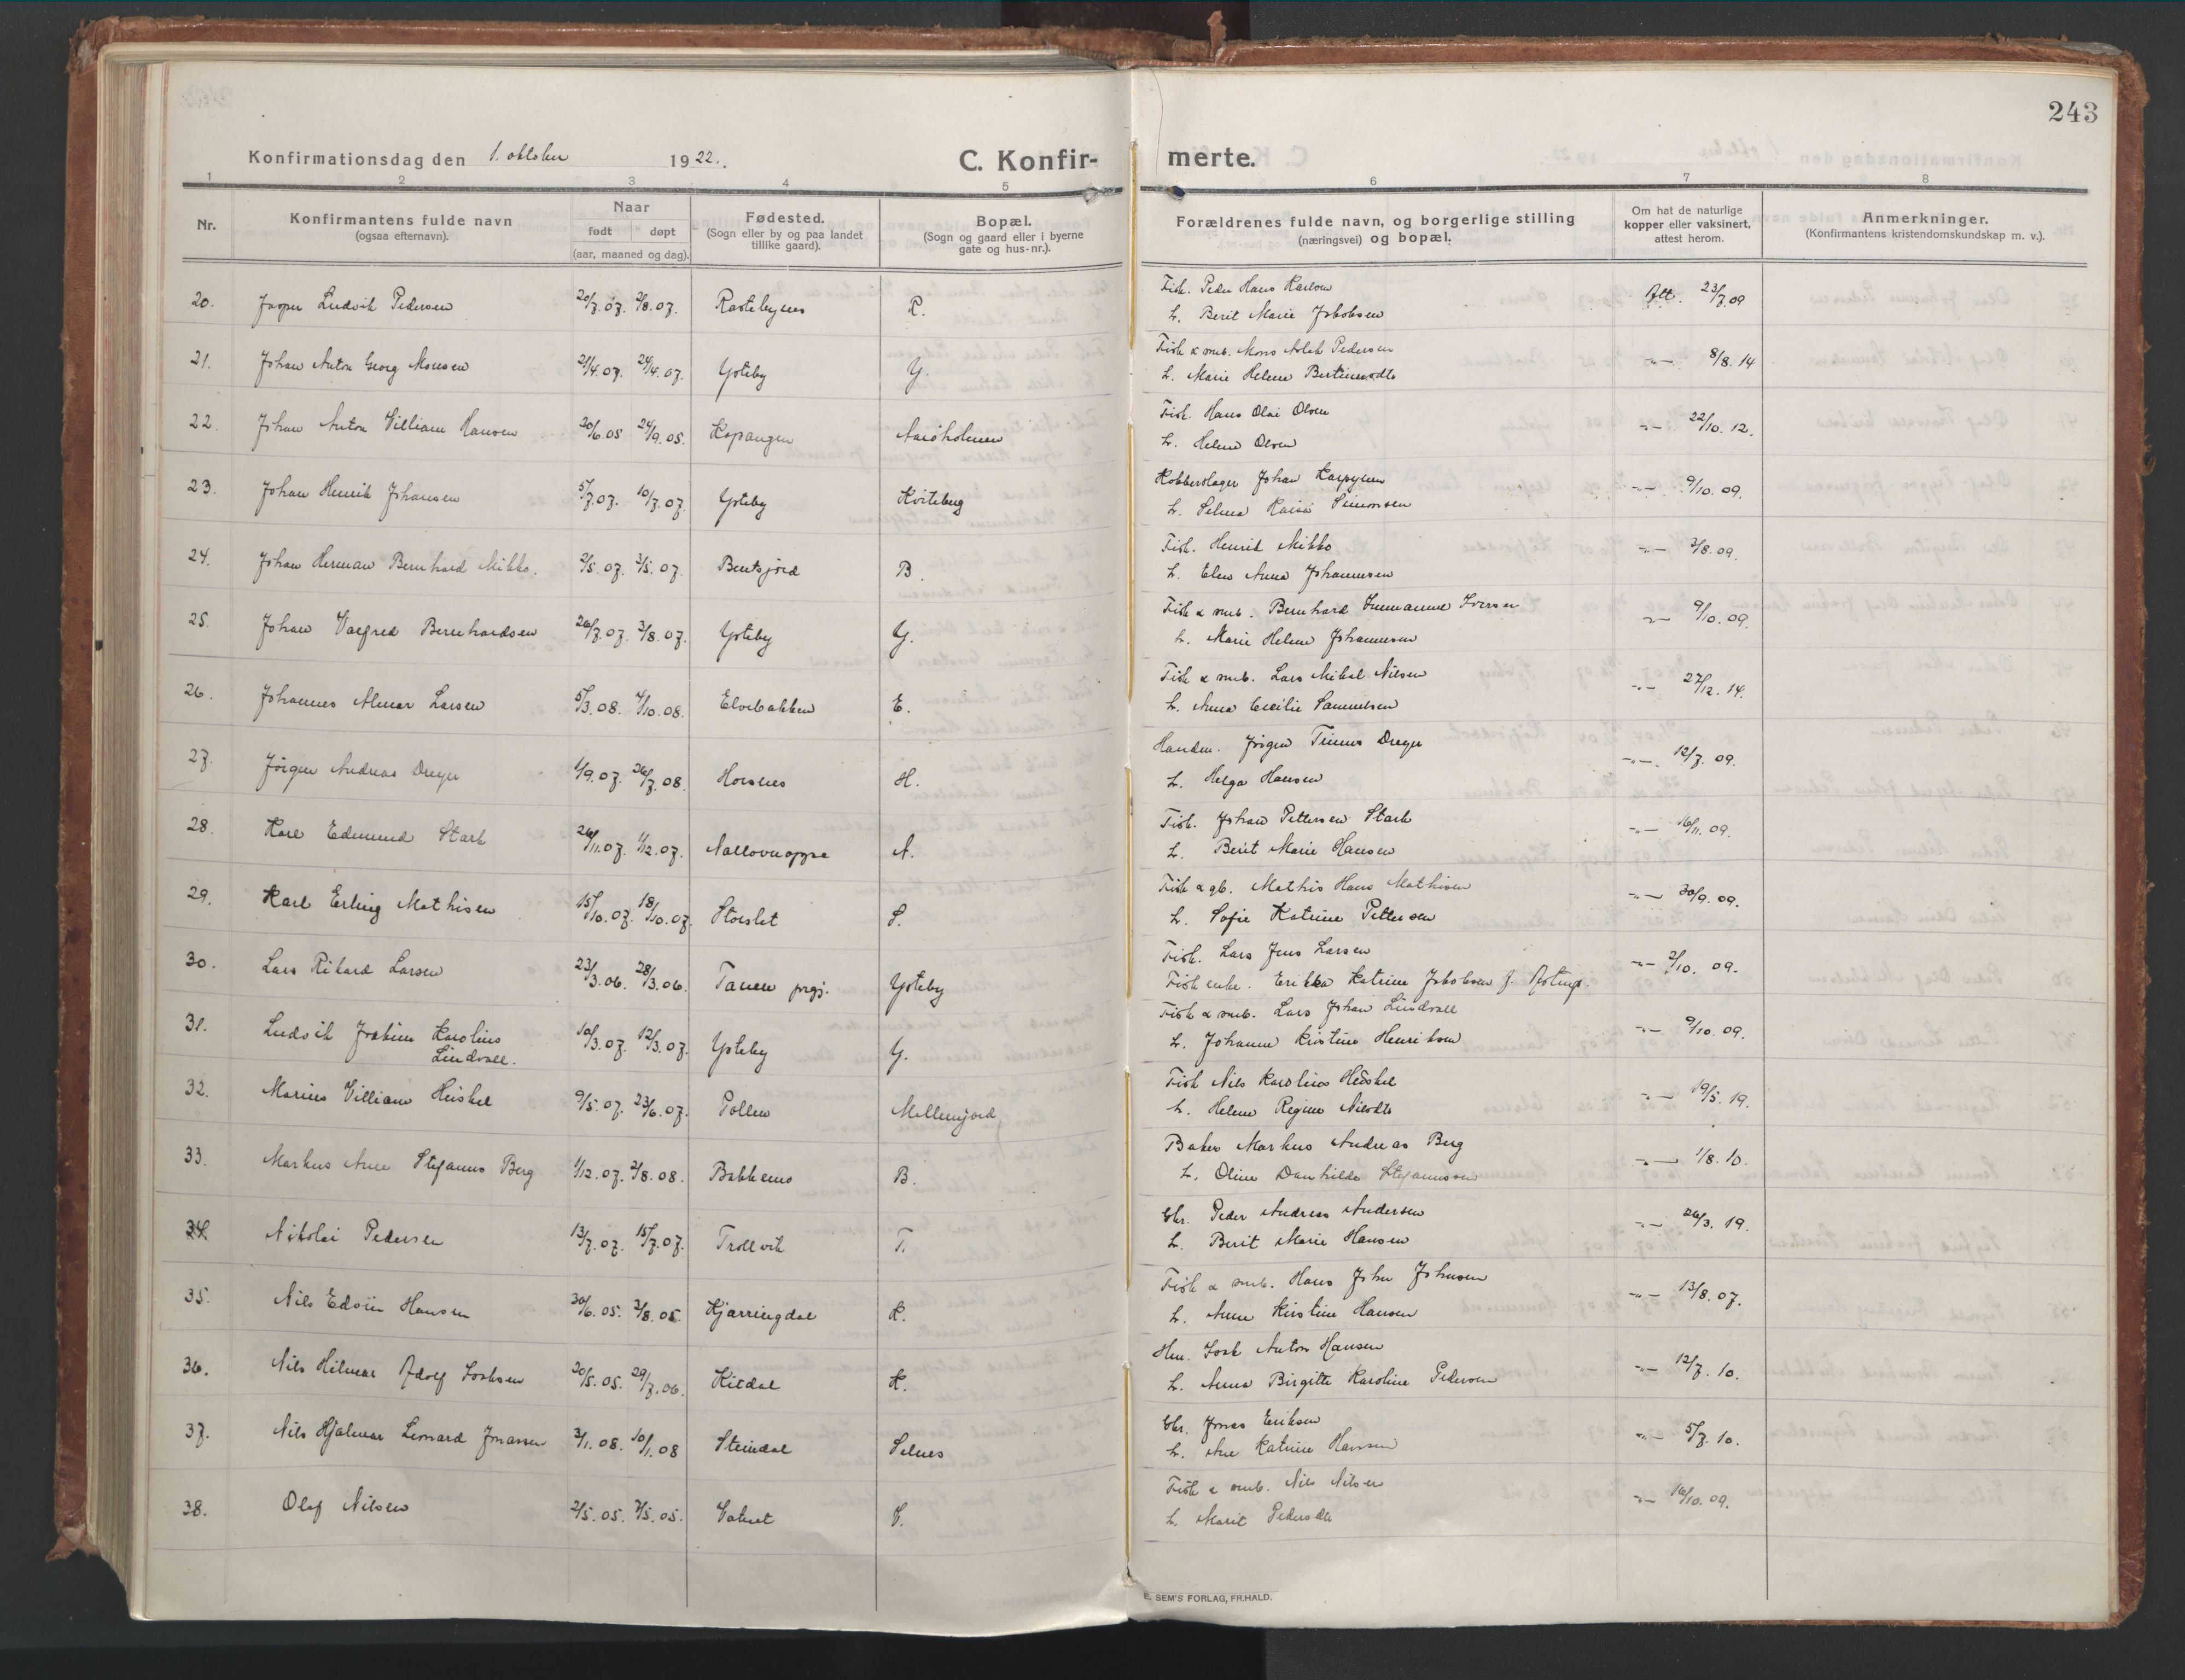 243
Konfirmationsdag den 1. oktober 1922.
C. Konfir- merte.
1 2 3 4 5 6 7 8
Nr.
Konfirmantens fulde navn
(ogsaa efternavn).
Naar
født døpt
(aar, maaned og dag).
Fødested.
(Sogn eller by og paa landet
tillike gaard).
Bopæl.
(Sogn og gaard eller i byerne
gate og hus-nr.).
Forældrenes fulde navn, og borgerlige stilling
(næringsvei) og bopæl.
Om hat de naturlige
kopper eller vaksinert,
attest herom.
Anmerkninger.
(Konfirmantens kristendomskundskap m. v.).
Fisk. Peder Hans Karlsen
20. Ludvik Pedersen 20/7.07. 2/8.07. R. Att. 23/7.09
L. Berit Marie Jakobsen
Fisk & smb. Mons Aslak Pedersen
21. Johan Anton Georg Monsen 21/4.07. 24/4.07. Yoteby Y. -"- 8/8.14
L. Marie Helene
Fisk. Hans Olai Olsen
22. Johan Anton Villiam Hansen 20/6.05 24/9.05. Kopangen -"- 22/10.12.
L. Helene Olsen
Kobberslager Johan
23. Johan Henrik Johansen 5/7.07. 10/7.07. Yoteby Kviteberg -"- 9/10.09.
L. Selma Kaisa Simonsen
Fisk. Henrik Mikko
24. Johan Herman Bernhard Mikko. 2/5.07. 3/5.07. Bentsjord B. -"- 3/8.09.
L. Elen Anna Johannesen
Fisk & smb. Bernhard Immanuel Iversen
25. Johan Valfred Bernhardsen 26/7.07. 3/8.07. Yoteby Y. -"- 9/10.09.
L. Marie Helene Johannesen
Fisk & smb. Lars Mikal Nilsen
26. Johannes Almar Larsen 5/3.08. 4/10.08. Elvebakken E. -"- 27/12.14.
L. Anna Cecilie Samuelsen
Handm. Jörgen Dreyer
27. Jörgen Andreas Dreyer 1/9.07. 26/7.08. Horsnes H. -"- 12/7.09.
L. Helga Hansen
Fisk. Johan Pettersen Stark
28. Karl Edmund Stark 26/11.07. 1/12.07. Nallovuoppe N. -"- 16/11.09.
L. Berit Marie Hansen
Fisk & gb. Mathis Hans Mathisen
29. Karl Erling Mathisen 15/10.07. 18/10.07. Storslet S. -"- 30/9.09.
L. Sofie Katrine Pettersen
Fisk. Lars Jens Larsen
30. Lars Rikard Larsen 23/3.06. 28/3.06. Tanen prgj. Yoteby -"- 2/10.09.
Fisk enke. Erikka Katrine Jakobsen f.
Fisk & smb. Lars Johan Lindvall
31. Ludvik Joakim Karolius 10/3.07. 12/3.07. Yoteby Y. -"- 9/10.09.
Lindvall.
L. Johanne Kristine Henriksen
Fisk Nils Karolius Heiskel
32. Marius Villiam Heiskel 9/5.07. 23/6.07. Pollen Mellemjord -"- 19/5.19.
L. Helene Regine Nilsdtr
Baker Markus Andreas Berg
33. Markus Arne Stefanus Berg 1/12.07. 2/8.08. Bakkenes B. -"- 1/8.10.
L. Oline Danhilde Stefanussen
Gbr. Peder Andreas Andersen
34. Nikolai Pedersen 13/7.07. 15/7.07. Trollvik T. -"- 26/3.19.
L. Berit Marie Hansen
Fisk & smb. Hans Johan Johnsen
35. Nils Edvin Hansen 30/6.05. 2/8.05. Kjærringdal K. -"- 13/8.07.
L. Anne Kirstine Hansen
Hm. Isak Anton Hansen
36. Nils Hilmar Adolf Isaksen 20/5.05. 29/7.06. Kitdal K. -"- 12/7.10.
L. Anna Birgitte Karoline Pedersen
Gbr. Jonas Eriksen
37. Nils Hjalmar Leonard Jonassen 3/1.08. 10/1.08 Steindal Selnes -"- 5/7.10.
L. Ane Katrine Hansen
Fisk & smb. Nils Nilsen
38. Olaf Nilsen 2/5.05. 7/5.05. Vatnet V. -"- 16/10.09.
L. Marit Pedersdtr
E. SEM'S FORLAG, FR.HALD.